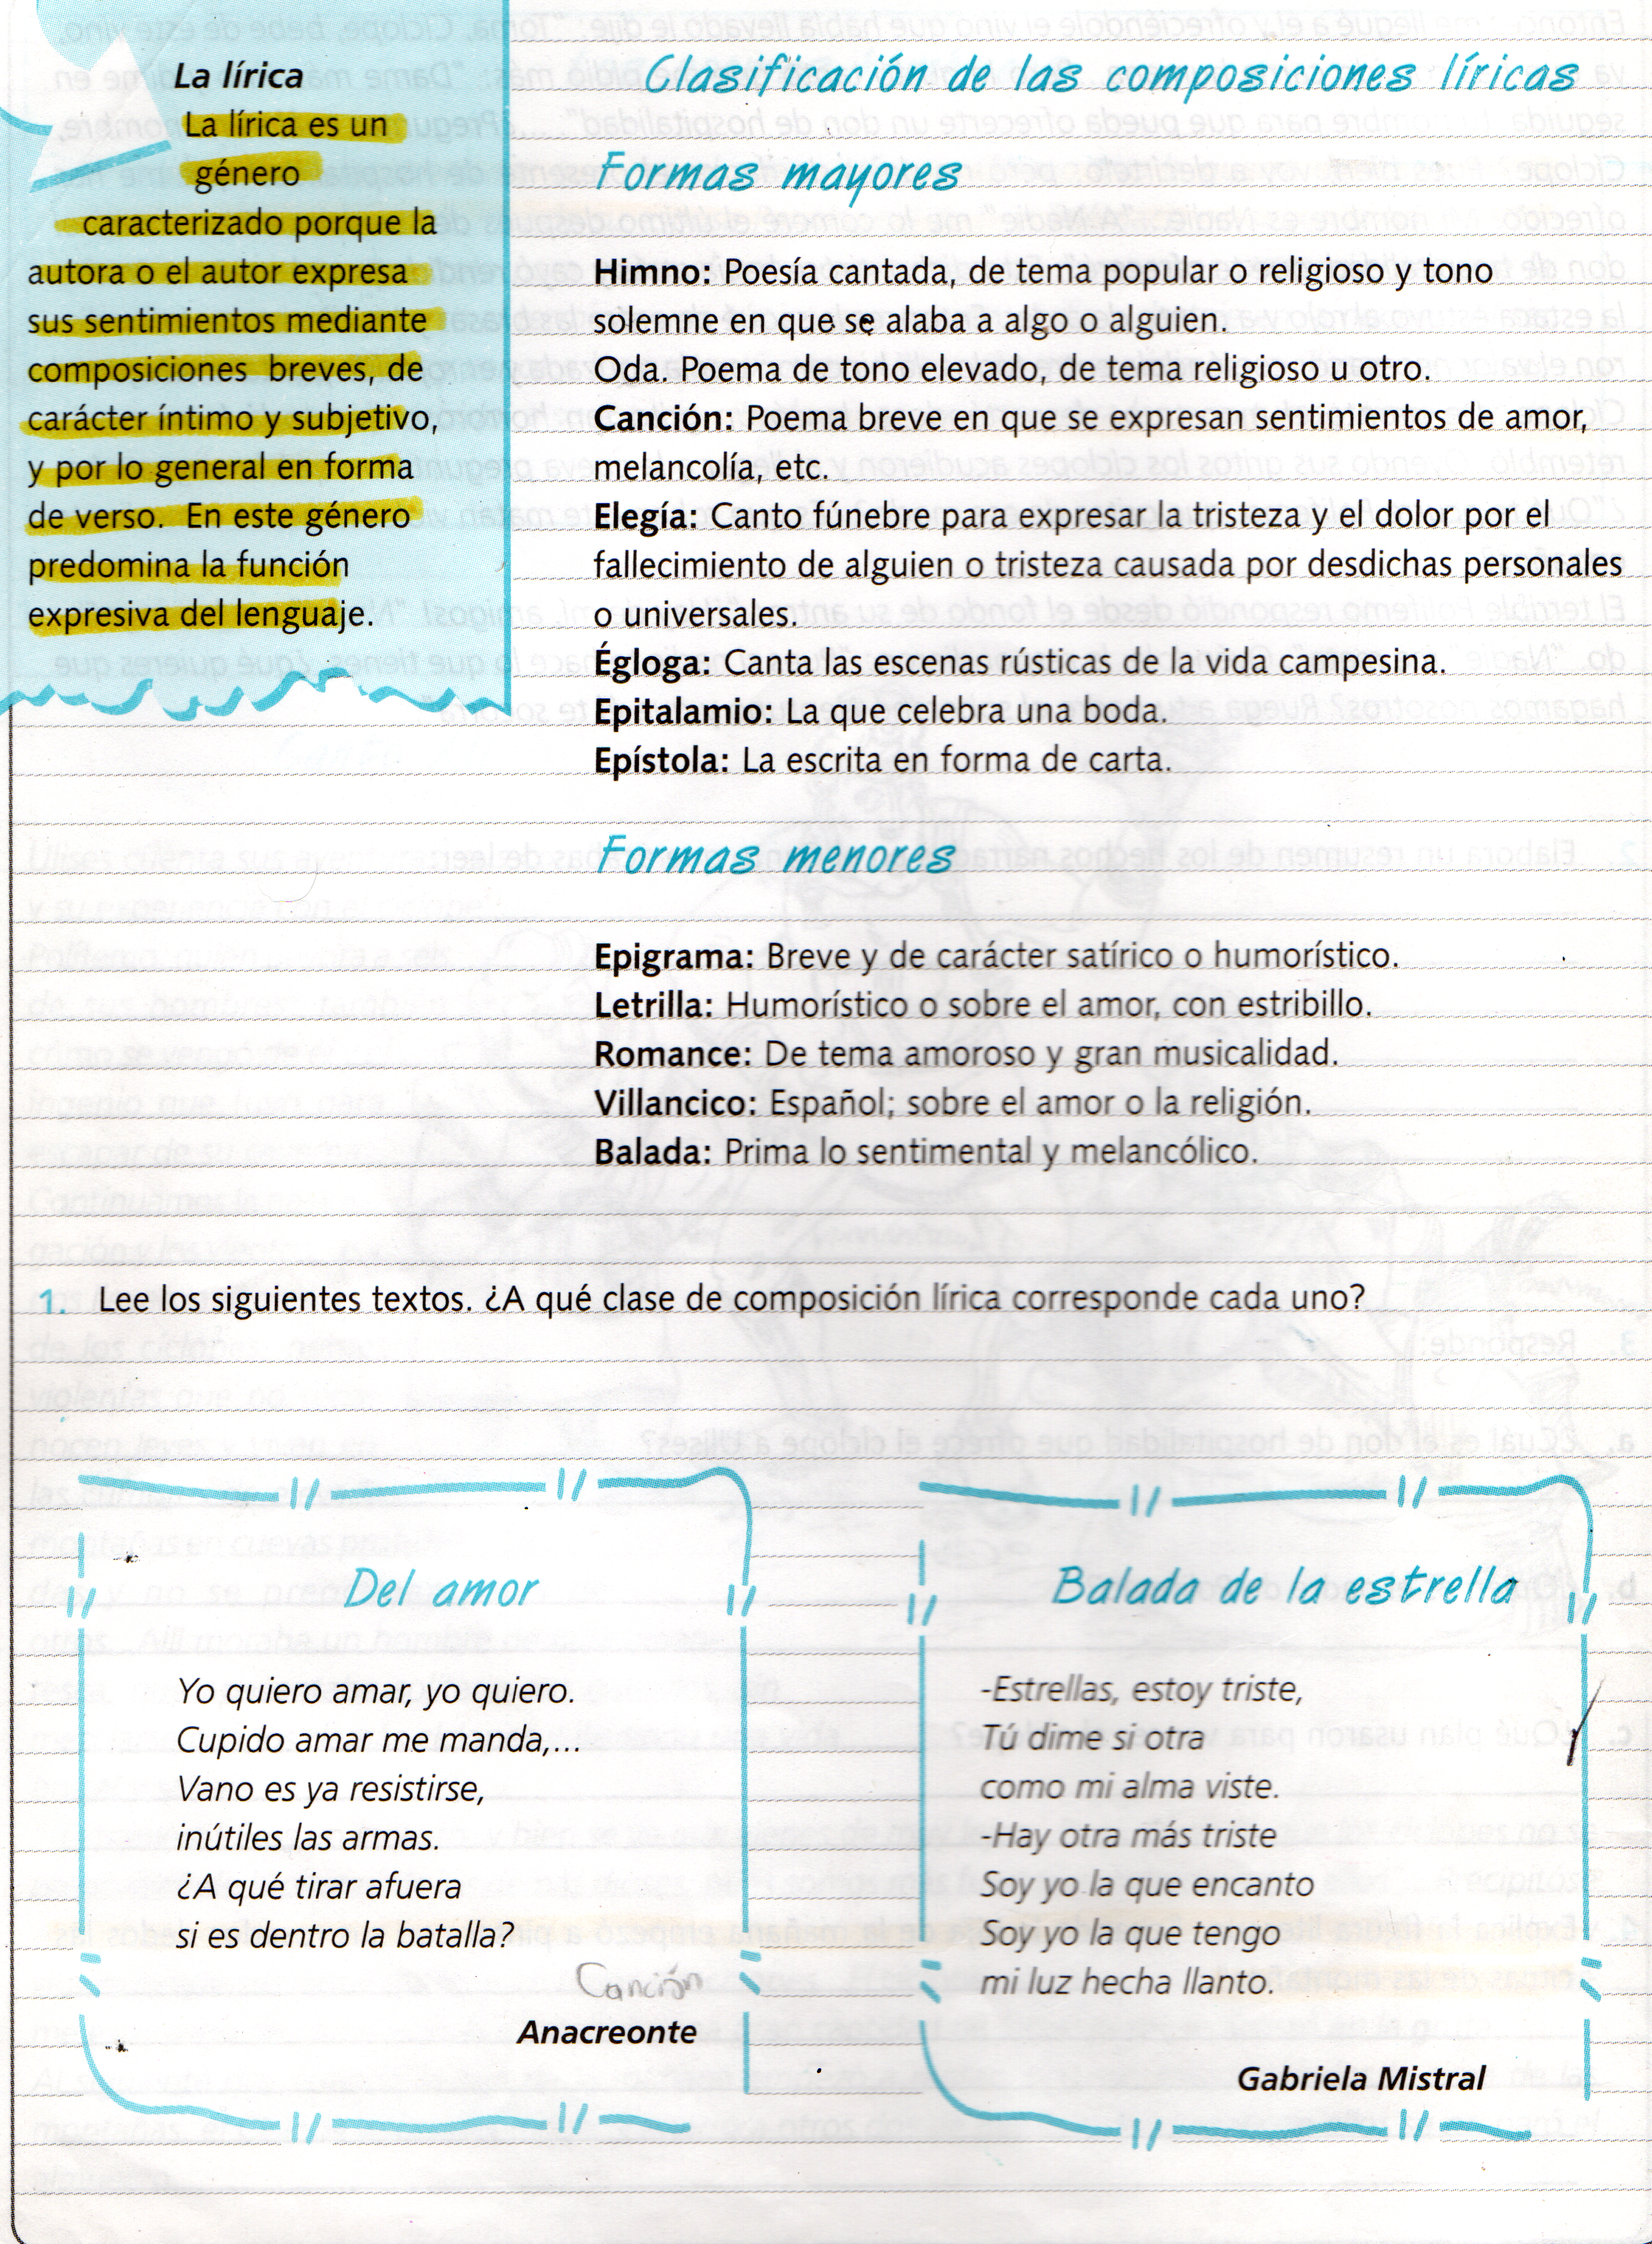 La lírica
La lírica es un
género
caracterizado porque la
autora o el autor expresa
sus sentimientos mediante
composiciones breves, de
carácter íntimo y subjetivo,
y por lo general en forma
de verso. En este género
predomina la función
expresiva del lenguaje.
Clasificación de las composiciones líricas
Formas mayores
Himno: Poesía cantada, de tema popular o religioso y tono
solemne en que se alaba a algo o alguien.
Oda. Poema de tono elevado, de tema religioso u otro.
Canción: Poema breve en que se expresan sentimientos de amor,
melancolía, etc.
Elegía: Canto fúnebre para expresar la tristeza y el dolor por el
fallecimiento de alguien o tristeza causada por desdichas personales
o universales.
Égloga: Canta las escenas rústicas de la vida campesina.
Epitalamio: La que celebra una boda.
Epístola: La escrita en forma de carta.
Formas menores
Epigrama: Breve y de carácter satírico o humorístico.
Letrilla: Humorístico o sobre el amor, con estribillo.
Romance: De tema amoroso y gran musicalidad.
Villancico: Español; sobre el amor o la religión.
Balada: Prima lo sentimental y melancólico.
1. Lee los siguientes textos. ¿A qué clase de composición lírica corresponde cada uno?
Del amor
Yo quiero amar, yo quiero.
Cupido amar me manda,...
Vano es ya resistirse,
inútiles las armas.
¿A qué tirar afuera
si es dentro la batalla?
Canción
Anacreonte
Balada de la estrella
-Estrellas, estoy triste,
Tú dime si otra
como mi alma viste.
-Hay otra más triste
Soy yo la que encanto
Soy yo la que tengo
mi luz hecha llanto.
Gabriela Mistral